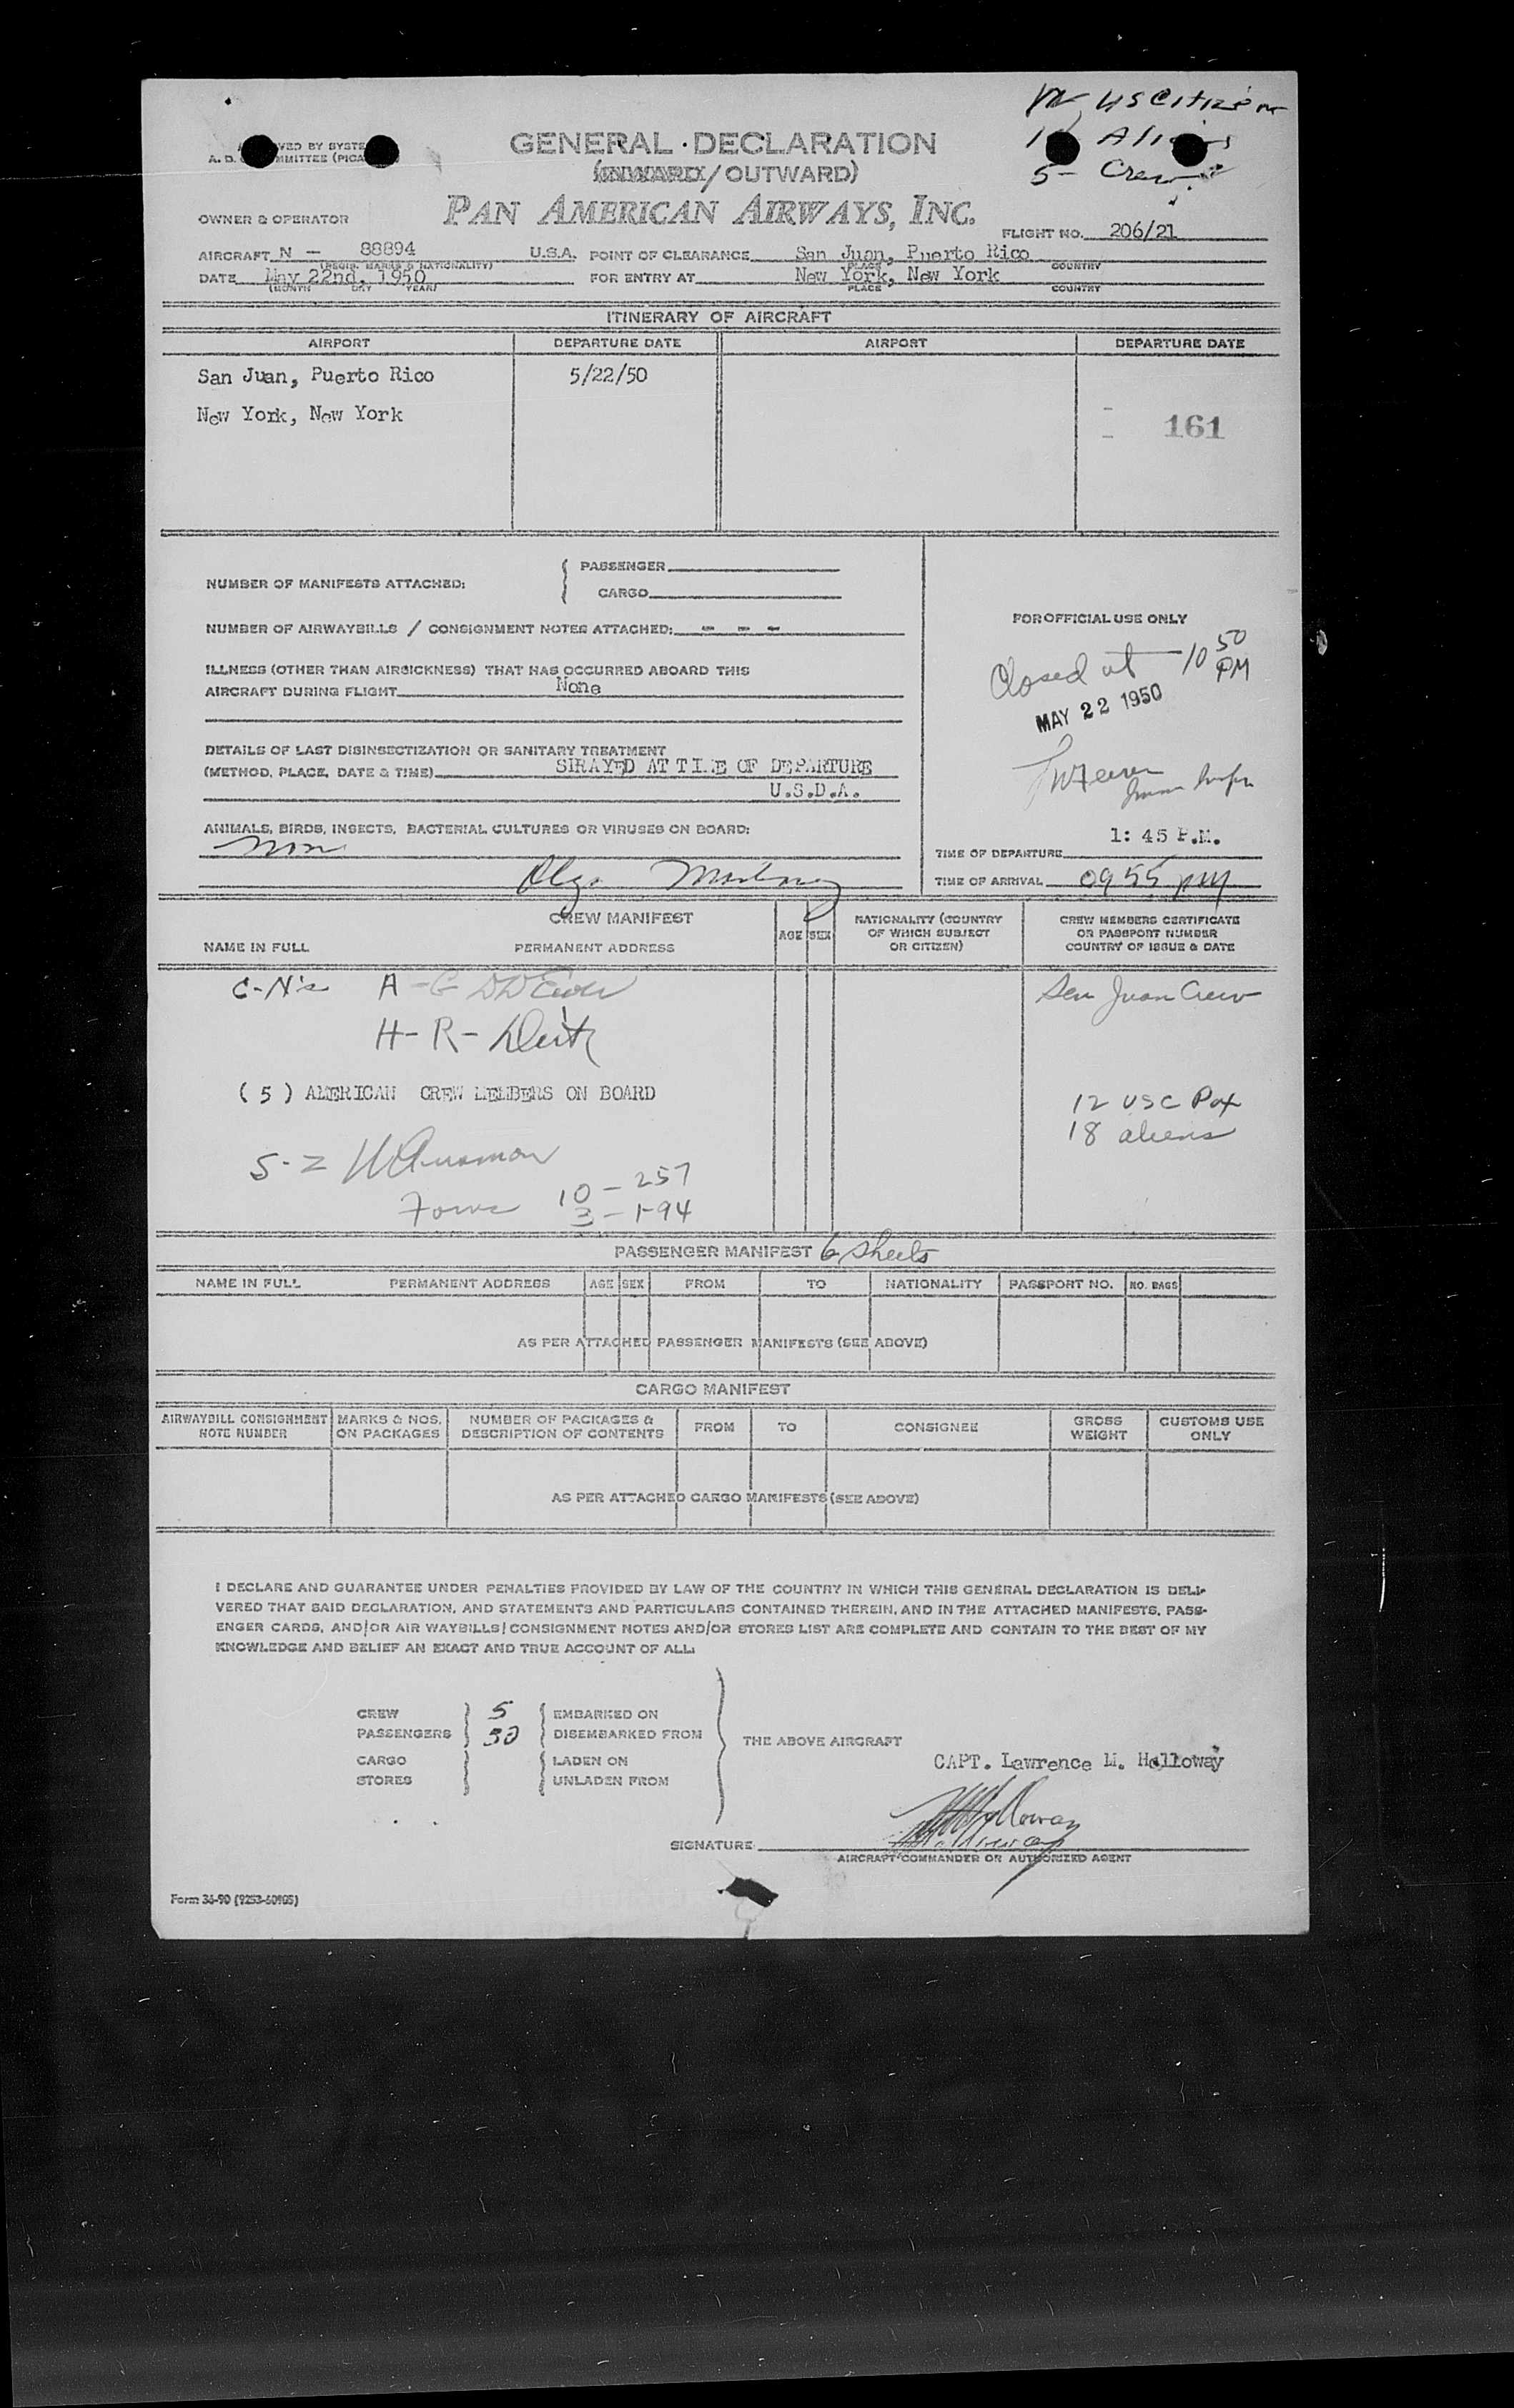 US Citizen
Aliens
5 - Crew
VED BY SYSTE
A. D. MMITTEE (PICA
GENERAL DECLARATION
(INWARD/OUTWARD)
OWNER & OPERATOR
PAN AMERICAN AIRWAYS, INC.
FLIGHT NO. 206/21
AIRCRAFT N - 88894 U.S.A. POINT OF CLEARANCE San Juan, Puerto Rico
(REGIS. MARKS & NATIONALITY) PLACE COUNTRY
DATE May 22nd, 1950 FOR ENTRY AT New York, New York
(MONTH DAY YEAR) PLACE COUNTRY
ITINERARY OF AIRCRAFT
AIRPORT DEPARTURE DATE AIRPORT DEPARTURE DATE
San Juan, Puerto Rico 5/22/50
New York, New York
161
NUMBER OF MANIFESTS ATTACHED: PASSENGER
CARGO
NUMBER OF AIRWAYBILLS / CONSIGNMENT NOTES ATTACHED: - - -
ILLNESS (OTHER THAN AIRSICKNESS) THAT HAS OCCURRED ABOARD THIS
AIRCRAFT DURING FLIGHT None
DETAILS OF LAST DISINSECTIZATION OR SANITARY TREATMENT
(METHOD, PLACE, DATE & TIME) SPRAYED AT TIME OF DEPARTURE
U.S.D.A.
ANIMALS, BIRDS, INSECTS, BACTERIAL CULTURES OR VIRUSES ON BOARD:
FOR OFFICIAL USE ONLY
Closed at - 10 50 PM
MAY 22 1950
TIME OF DEPARTURE 1:45 P.M.
TIME OF ARRIVAL 09 55 pm
CREW MANIFEST
NAME IN FULL PERMANENT ADDRESS AGE SEX NATIONALITY (COUNTRY OF WHICH SUBJECT OR CITIZEN) CREW MEMBERS CERTIFICATE OR PASSPORT NUMBER COUNTRY OF ISSUE & DATE
San Juan Crew
H - R -
( 5 ) AMERICAN CREW MEMBERS ON BOARD
12 USC Pax
18 aliens
10 - 257
3 - 1-94
PASSENGER MANIFEST 6 sheets
NAME IN FULL PERMANENT ADDRESS AGE SEX FROM TO NATIONALITY PASSPORT NO. NO. BAGS
AS PER ATTACHED PASSENGER MANIFESTS (SEE ABOVE)
CARGO MANIFEST
AIRWAYBILL CONSIGNMENT NOTE NUMBER MARKS & NOS. ON PACKAGES NUMBER OF PACKAGES & DESCRIPTION OF CONTENTS FROM TO CONSIGNEE GROSS WEIGHT CUSTOMS USE ONLY
AS PER ATTACHED CARGO MANIFESTS (SEE ABOVE)
I DECLARE AND GUARANTEE UNDER PENALTIES PROVIDED BY LAW OF THE COUNTRY IN WHICH THIS GENERAL DECLARATION IS DELI-
VERED THAT SAID DECLARATION, AND STATEMENTS AND PARTICULARS CONTAINED THEREIN, AND IN THE ATTACHED MANIFESTS, PASS-
ENGER CARDS, AND/OR AIR WAYBILLS/CONSIGNMENT NOTES AND/OR STORES LIST ARE COMPLETE AND CONTAIN TO THE BEST OF MY
KNOWLEDGE AND BELIEF AN EXACT AND TRUE ACCOUNT OF ALL:
CREW 5 EMBARKED ON
PASSENGERS 30 DISEMBARKED FROM
THE ABOVE AIRCRAFT
CARGO LADEN ON
STORES UNLADEN FROM
CAPT. Lawrence M. Holloway
SIGNATURE
AIRCRAFT COMMANDER OR AUTHORIZED AGENT
Form 36-90 (9253-60905)